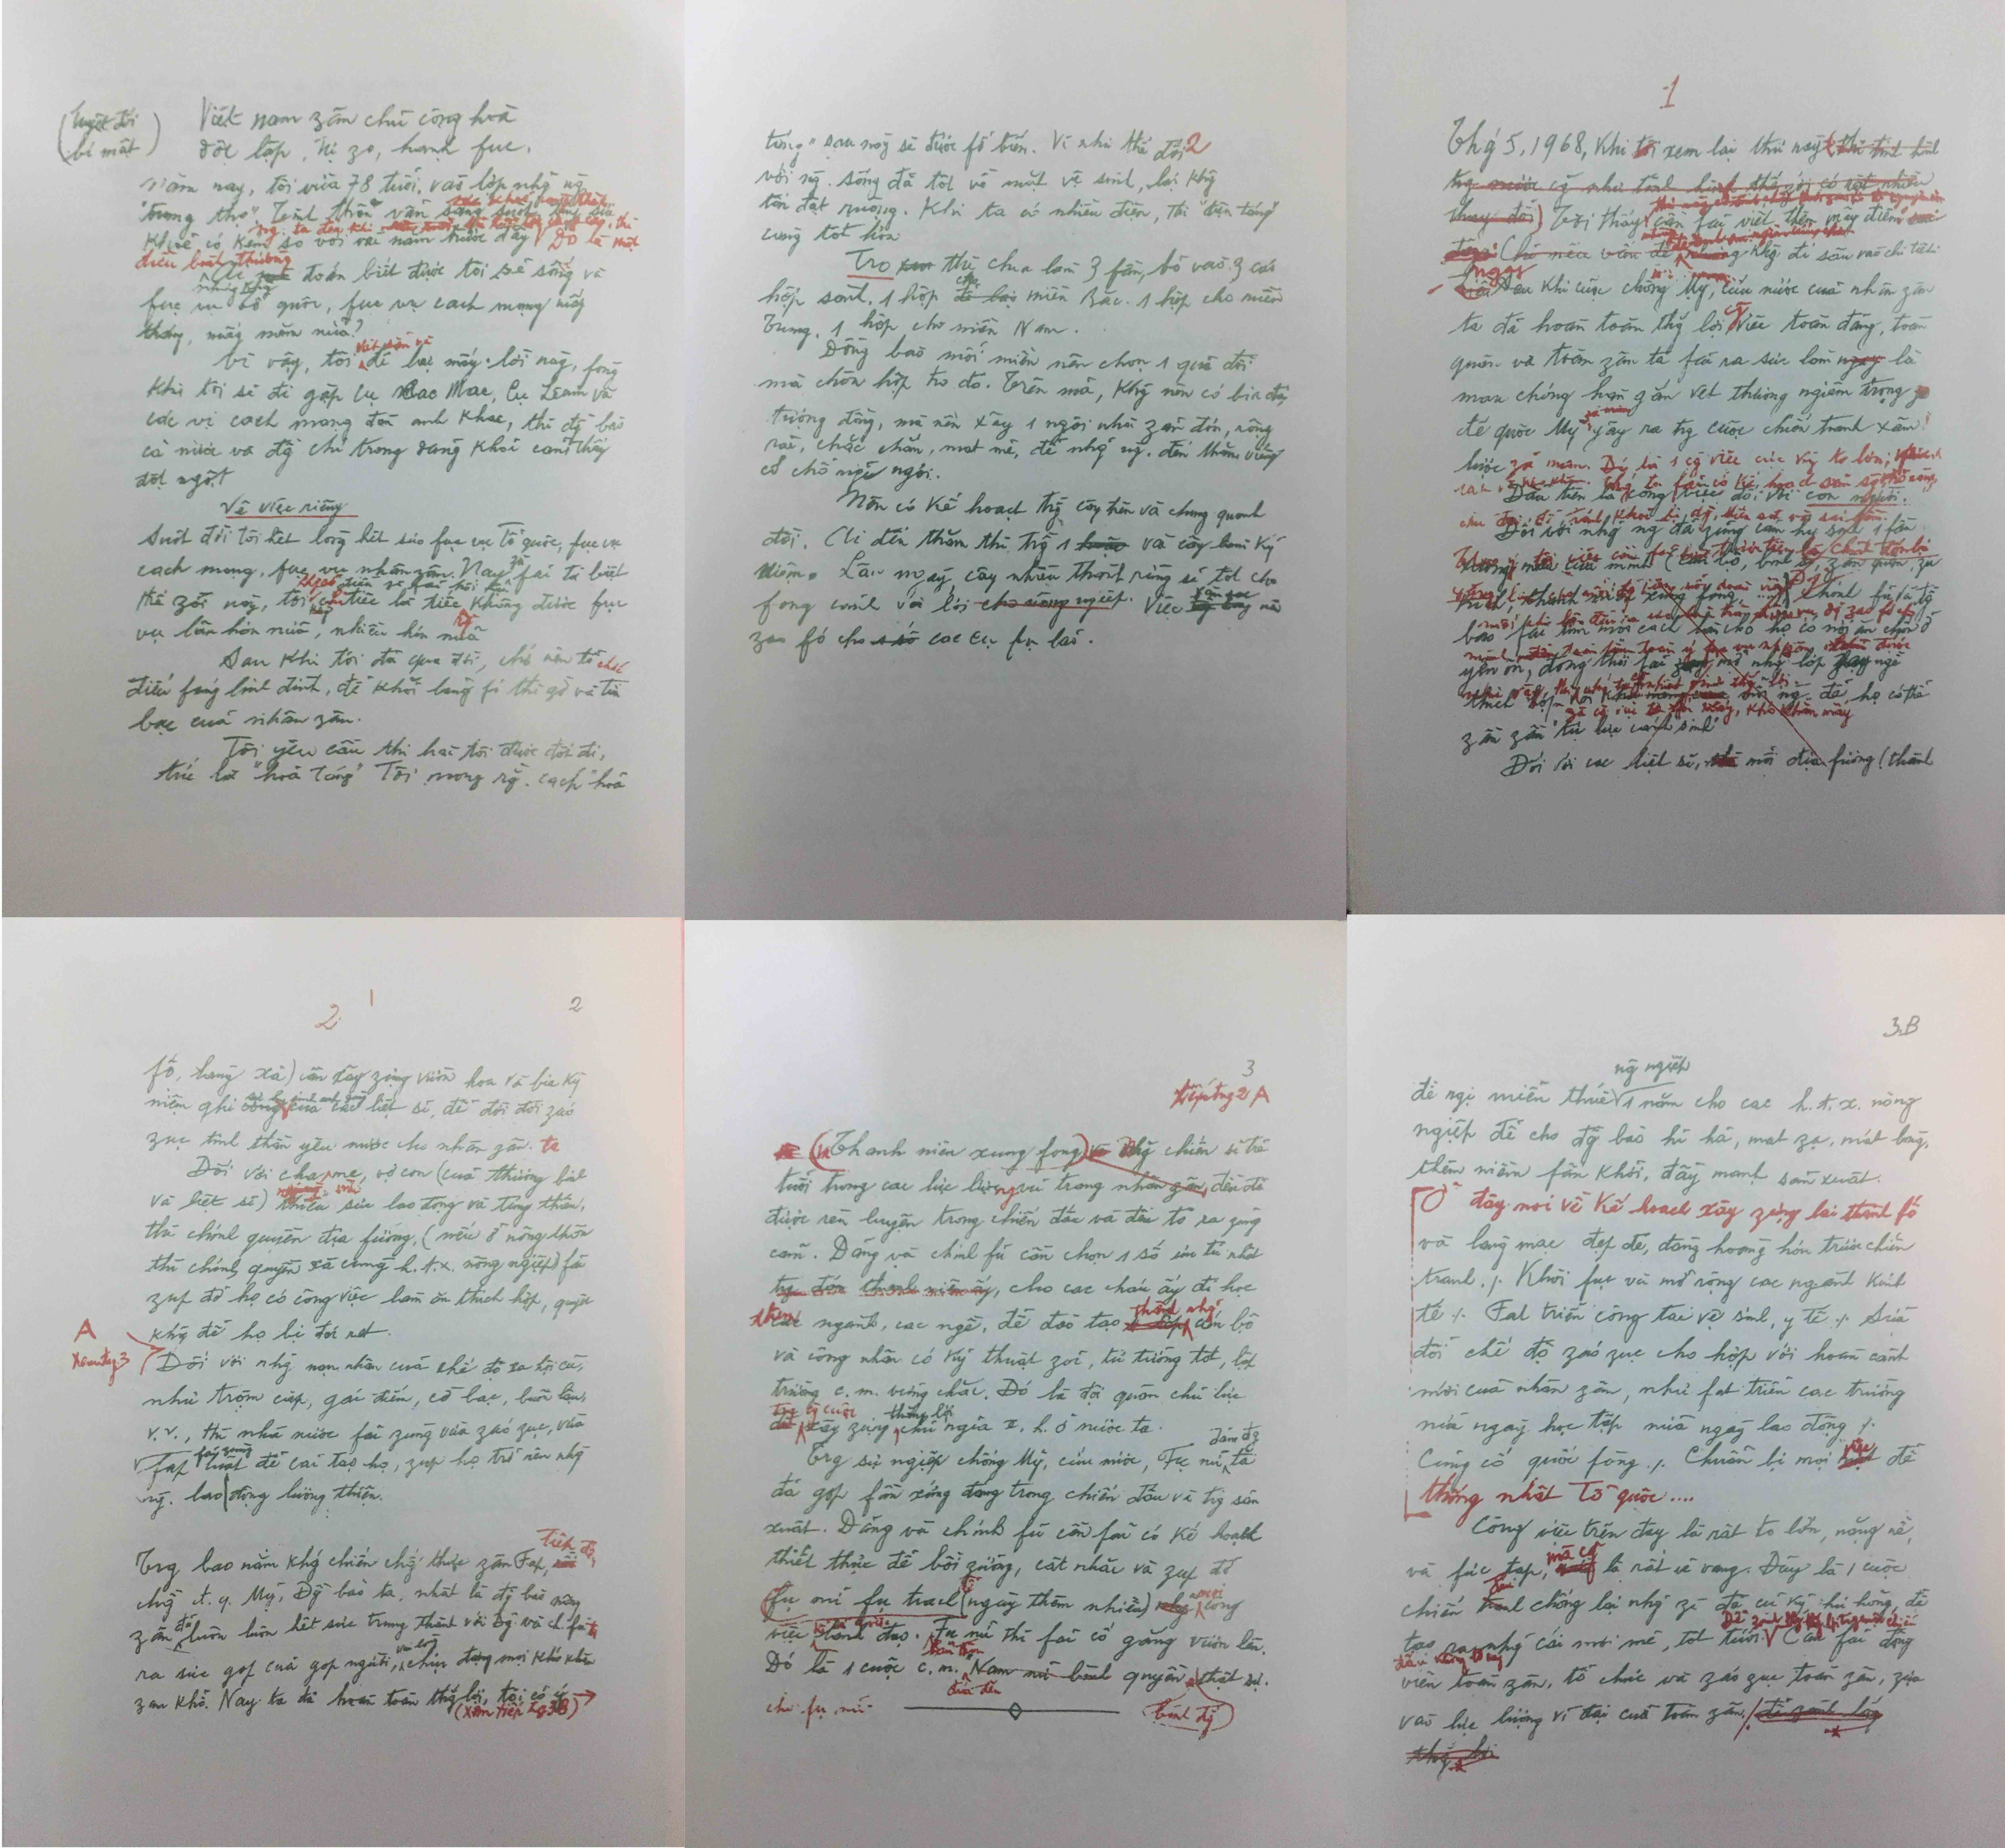 (Tuyệt đối
bí mật)
Việt nam zân chủ cộng hoà
độc lập, tự zo, hạnh fúc.
Năm nay, tôi vừa 78 tuổi, vào lớp nhữg ng.
"trung thọ". Tinh thần vẫn sáng suốt, thân thể
khoẻ, có kém so với vài năm trước đây. Đó là một
điều bình thường
Ai mà đoán biết được tôi sẽ sống và
fục vụ Tổ quốc, fục vụ cách mạng mấy
tháng, mấy năm nữa?
Vì vậy, tôi viết sẵn và để lại mấy lời này, fòng
khi tôi sẽ đi gặp cụ Các Mác, Cụ Lênin và
các vị cách mạng đàn anh khác, thì đg bào
cả nước và đg chí trong đảng khỏi cảm thấy
đột ngột
Về việc riêng
Suốt đời tôi hết lòng hết sức fục vụ Tổ quốc, fục vụ
cách mạng, fục vụ nhân zân. Nay zù fải từ biệt
thế zới này, tôi không có điều gì fải hối hận, chỉ tiếc là tiếc không được fục
vụ lâu hơn nữa, nhiều hơn nữa
Sau khi tôi đã qua đời, chớ nên tổ chức
điếu fúng linh đình, để khỏi lãng fí thì giờ và tiền
bạc của nhân zân.
Tôi yêu cầu thi hài tôi được đốt đi,
tức là "hoả táng" Tôi mong rg. cách "hoả
táng" sau này sẽ được fổ biến. Vì như thế đối 2
với ng. sống đã tốt về mặt vệ sinh, lại khg
tốn đất ruộng. Khi ta có nhiều điện, thì "điện táng"
càng tốt hơn
Tro xương thì chia làm 3 fần, bỏ vào 3 cái
hộp sành. 1 hộp cho miền Bắc. 1 hộp cho miền
Trung, 1 hộp cho miền Nam.
Đồng bào mỗi miền nên chọn 1 quả đồi
mà chôn hộp tro đó. Trên mả, khg nên có bia đá
tượng đồng, mà nên xây 1 ngôi nhà zản đơn, rộng
rãi, chắc chắn, mát mẻ, để nhữg ng. đến thăm viếng
có chỗ nghỉ ngơi.
Nên có kế hoạch trồg cây trên và chung quanh
đồi. Ai đến thăm thì trồg 1 và cây làm kỷ
niệm. Lâu ngày, cây nhiều thành rừng sẽ tốt cho
fong cảnh và lợi cho nông ngiệp. Việc săn sóc nên
zao fó cho các cụ fụ lão.
1
Thg 5, 1968, Khi tôi xem lại thư này
tôi thấy cần fải viết thêm mấy điểm
khg đi sâu vào chi tiết.
Ngay sau khi cuộc chống Mỹ, cứu nước của nhân zân
ta đã hoàn toàn thg lợi, cg việc toàn đảng, toàn
quân và toàn zân ta fải ra sức làm là
mau chóng hàn gắn vết thương ngiêm trọng zo
đế quốc Mỹ gây ra trg cuộc chiến tranh xâm
lược zã man. Đó là 1 cg việc cực kỳ to lớn,
Đầu tiên là công việc đối với con người.
Đối với nhữg ng đã zũng cảm hy sinh 1 fần
xương máu của mình (cán bộ, binh sĩ, zân quân, zu
kích, thanh niên xung fong...) Đảng, chính fủ và đg
bào fải tìm mọi cách làm cho họ có nơi ăn chốn ở
yên ổn, đồng thời fải mở nhữg lớp zạy ngề
thích hợp với mỗi ng. để họ có thể
zần zần "tự lực cánh sinh"
Đối với các liệt sĩ, mỗi địa fương (thành
2
1
2
fố, làng xã) cần xây zựng vườn hoa và bia kỷ
niệm ghi sự hy sinh anh zũng của các liệt sĩ, để đời đời záo
zục tinh thần yêu nước cho nhân zân ta
Đối với cha mẹ, vợ con (của thương binh
và liệt sĩ) thiếu sức lao động và túng thiếu,
thì chính quyền địa fương, (nếu ở nông thôn
thì chính quyền xã cùng h.t.x. nông ngiệp) fải
zúp đỡ họ có công việc làm ăn thích hợp, quyết
khg để họ bị đói rét.
A
Xem trg 3
Đối với nhữg nạn nhân của chế độ xã hội cũ,
như trộm cắp, gái điếm, cờ bạc, buôn lậu,
v.v., thì nhà nước fải zùng vừa záo zục, vừa
fải zùng fáp luật để cải tạo họ, zúp họ trở nên nhữg
ng. lao động lương thiện.
Trg bao năm khg chiến chg thực zân Fáp, tiếp đó
chg đ.q. Mỹ, Đg bào ta, nhất là đg bào nông
zân đã luôn luôn hết sức trung thành với Đg và ch.fủ ta
ra sức góp của góp người, vui lòng chịu đựng mọi khó khăn
zan khổ. Nay ta đã hoàn toàn thg lợi, tôi có ý
(xem tiếp trg 3B)
3
tiếp trg 2 A
(Thanh niên xung fong) Nhữg chiến sĩ trẻ
tuổi trong các lực lượng vũ trang nhân zân, đều đã
được rèn luyện trong chiến đấu và đều tỏ ra zũng
cảm. Đảng và chính fủ cần chọn 1 số ưu tú nhất
cho các cháu ấy đi học
thêm các ngành, các ngề, để đào tạo thành nhữg cán bộ
và công nhân có kỹ thuật zỏi, tư tưởng tốt, lập
trường c.m. vững chắc. Đó là đội quân chủ lực
trg cg cuộc xây zựng thắng lợi chủ ngĩa x.h. ở nước ta.
Trg sự ngiệp chống Mỹ, cứu nước, Fụ nữ đảm đg ta
đã góp fần xứng đáng trong chiến đấu và trg sản
xuất. Đảng và chính fủ cần fải có kế hoạch
thiết thực để bồi zưỡng, cất nhắc và zúp đỡ
fụ nữ fụ trách (ngày thêm nhiều) mọi công
việc kể cả việc lãnh đạo. Fụ nữ thì fải cố gắng vươn lên.
Đó là 1 cuộc c.m. đưa đến quyền bình đg thật sự.
cho fụ nữ
3.B
ng ngiệp
đề ngị miễn thuế 1 năm cho các h.t.x. nông
ngiệp để cho đg bào hỉ hả, mát zạ, mát lòng,
thêm niềm fấn khởi, đẩy mạnh sản xuất.
Ở đây nói về kế hoạch xây zựng lại thành fố
và làng mạc đẹp đẽ, đàng hoàng hơn trước chiến
tranh. ./. Khôi fục và mở rộng các ngành kinh
tế ./. Fát triển công tác vệ sinh, y tế ./. Sửa
đổi chế độ záo zục cho hợp với hoàn cảnh
mới của nhân zân, như fát triển các trường
nửa ngày học tập nửa ngày lao động ./.
Củng cố quốc fòng ./. Chuẩn bị mọi việc để
thống nhất Tổ quốc....
Công việc trên đây là rất to lớn, nặng nề,
và fức tạp, mà cg là rất vẻ vang. Đây là 1 cuộc
chiến đấu chống lại nhữg zì đã cũ kỹ, hư hỏng, để
tạo ra nhữg cái mới mẻ, tốt tươi. Cần fải động
viên toàn zân, tổ chức và záo zục toàn zân, zựa
vào lực lượng vĩ đại của toàn zân.